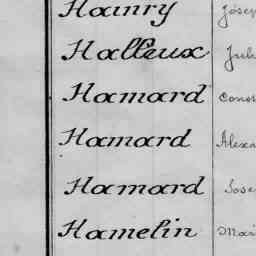 Hainry Josep
Halleux Jule
Hamard Const
Hamard Alexa
Hamard Jose
Hamelin Mari